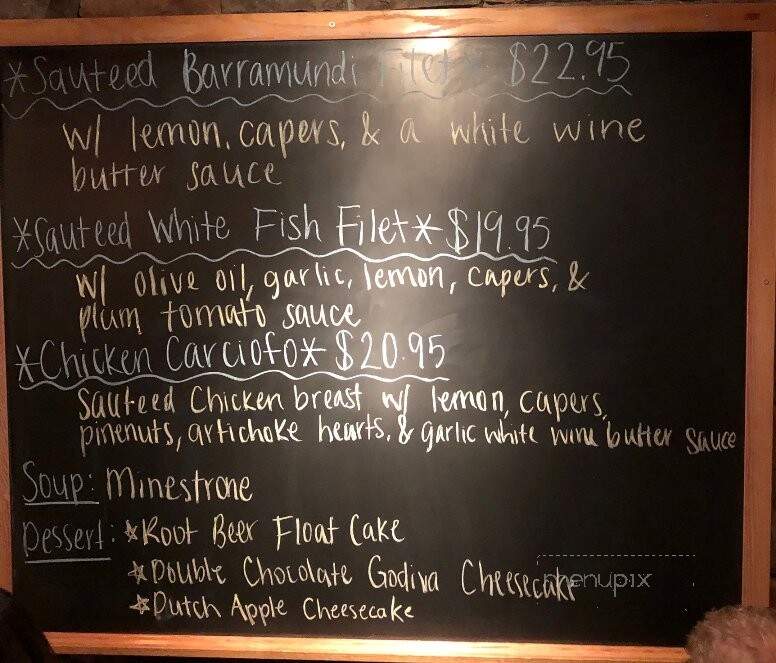 *Sauteed Barramundi Filet* $22.95
w/ lemon, capers, & a white wine
butter sauce
*Sauteed White Fish Filet* $19.95
w/ olive oil, garlic, lemon, capers, &
plum tomato sauce
*Chicken Carciofo* $20.95
Sauteed Chicken breast w/ lemon, capers,
pinenuts, artichoke hearts, & garlic white wine butter sauce
Soup: Minestrone
Dessert: *Root Beer Float Cake
*Double Chocolate Godiva Cheesecake
*Dutch Apple Cheesecake
menupix